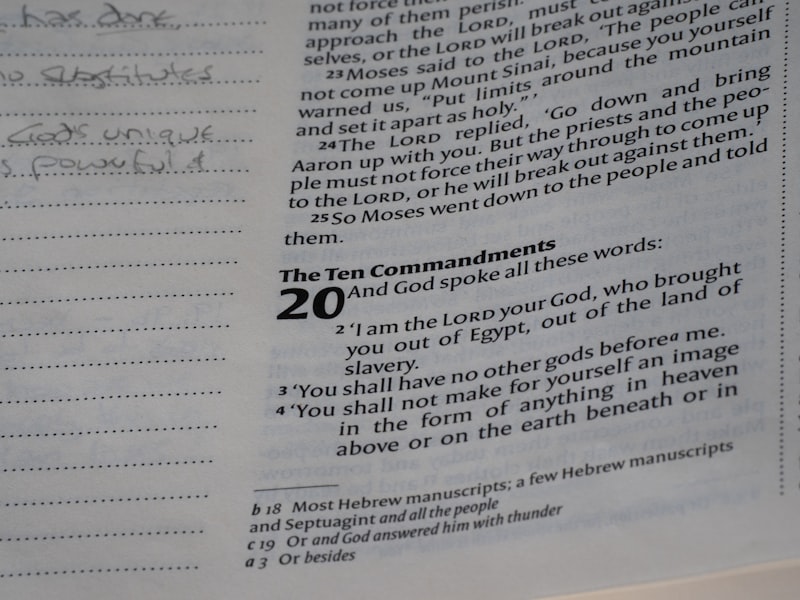 has done,
no substitutes
God's unique
powerful &
not force their
many of them perish.
approach the LORD, must
selves, or the LORD will break out against
23 Moses said to the LORD, ‘The people can
not come up Mount Sinai, because you yourself
warned us, “Put limits around the mountain
and set it apart as holy.”’
24 The LORD replied, ‘Go down and bring
Aaron up with you. But the priests and the peo-
ple must not force their way through to come up
to the LORD, or he will break out against them.’
25 So Moses went down to the people and told
them.
The Ten Commandments
20 And God spoke all these words:
2 ‘I am the LORD your God, who brought
you out of Egypt, out of the land of
slavery.
3 ‘You shall have no other gods before a me.
4 ‘You shall not make for yourself an image
in the form of anything in heaven
above or on the earth beneath or in
b 18 Most Hebrew manuscripts; a few Hebrew manuscripts
and Septuagint and all the people
c 19 Or and God answered him with thunder
a 3 Or besides